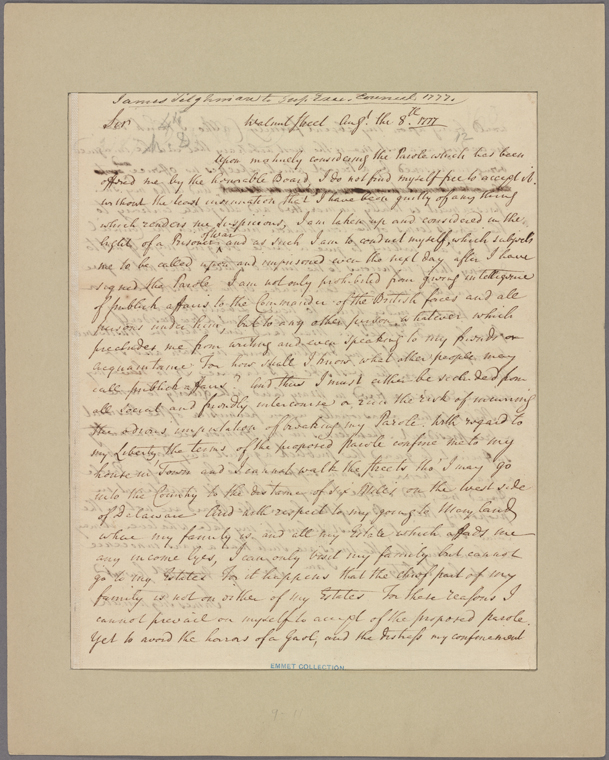 James Tilghman to Sup. Exec. Council. 1777.
Sir Walnut Street Augt. the 8th. 1777
Upon maturely considering the Parole which has been
offered me by the honorable Board, I do not find myself free to accept it.
without the least insinuation that I have been guilty of any thing
which renders me suspicious, I am taken up and considered in the
light of a Prisoner of War and as such I am to conduct myself, which subjects
me to be called upon and imprisoned even the next day after I have
signed the Parole I am not only prohibited from giving intelligence
of publick affairs to the Commander of the British forces and all
persons under him, but to any other person whatever which
precludes me from writing and even speaking to my friends or
acquaintance For how shall I know what other people may
call publick affairs? And thus I must either be secluded from
all social and friendly intercourse or run the risk of incurring
the odious imputation of breaking my Parole. With regard to
my Liberty the terms of the proposed parole confine me to my
house in Town and I cannot walk the streets tho' I may go
into the Country to the distance of six Miles on the west side
of Delaware And with respect to my going to Maryland
where my family is and all my Estate which affords me
any income lyes, I can only visit my family but cannot
go to my Estates For it happens that the chief part of my
family is not on either of my Estates For these reasons I
cannot prevail on myself to accept of the proposed parole.
Yet to avoid the horrors of a Gaol, and the distress my confinement
EMMET COLLECTION